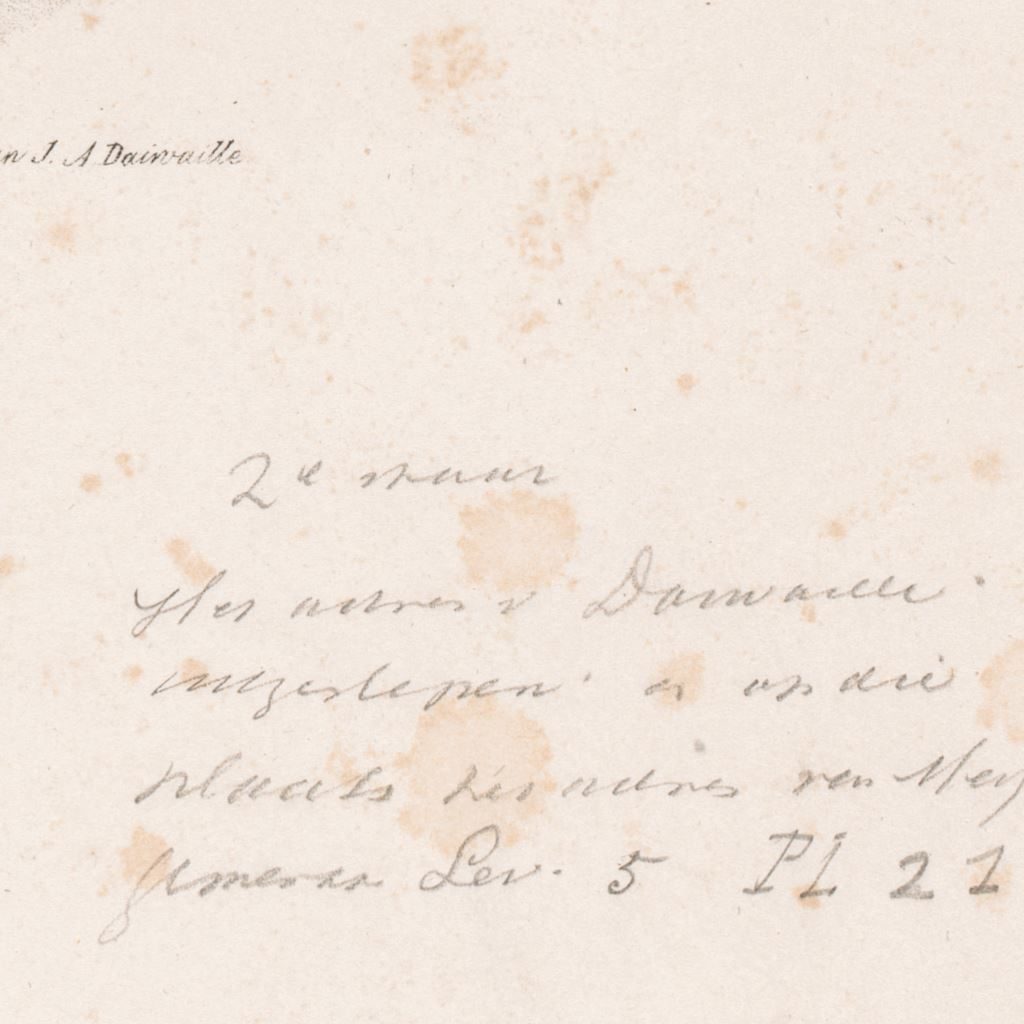 n J. A Daiwaille
2e staat
Het adres v Daiwaille
uitgeslepen en op die
plaats het adres van
Lev. 5 Pl 21